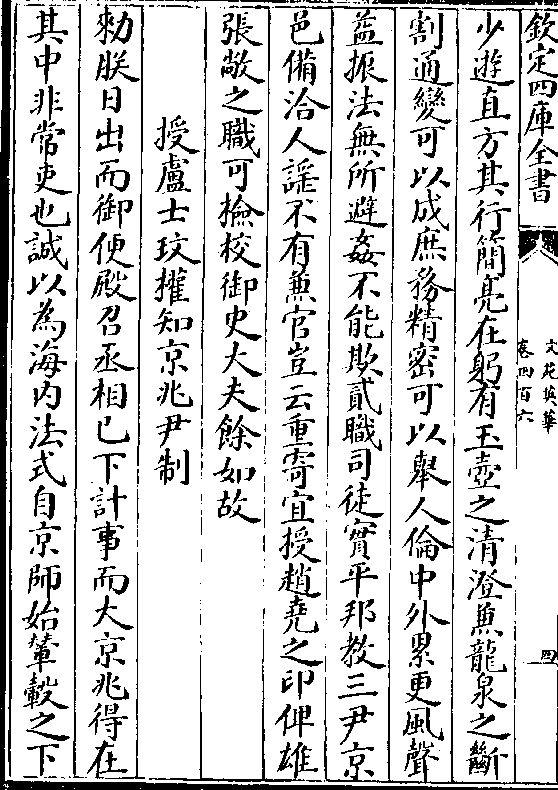 欽定四庫全書
文苑英華
卷四百六
四
少遊直方其行簡亮在躬有玉壺之清澄兼龍泉之斷
割通變可以成庶務精密可以舉人倫中外累更風聲
益振法無所避姦不能欺貳職司徒實平邦教三尹京
邑備洽人謡不有兼官豈云重寄宜授趙堯之印俾雄
張敞之職可撿校御史大夫餘如故
授盧士玫擢知京兆尹制
勑朕日出而御便殿召丞相已下計事而大京兆得在
其中非常吏也誠以為海内法式自京師始輦轂之下